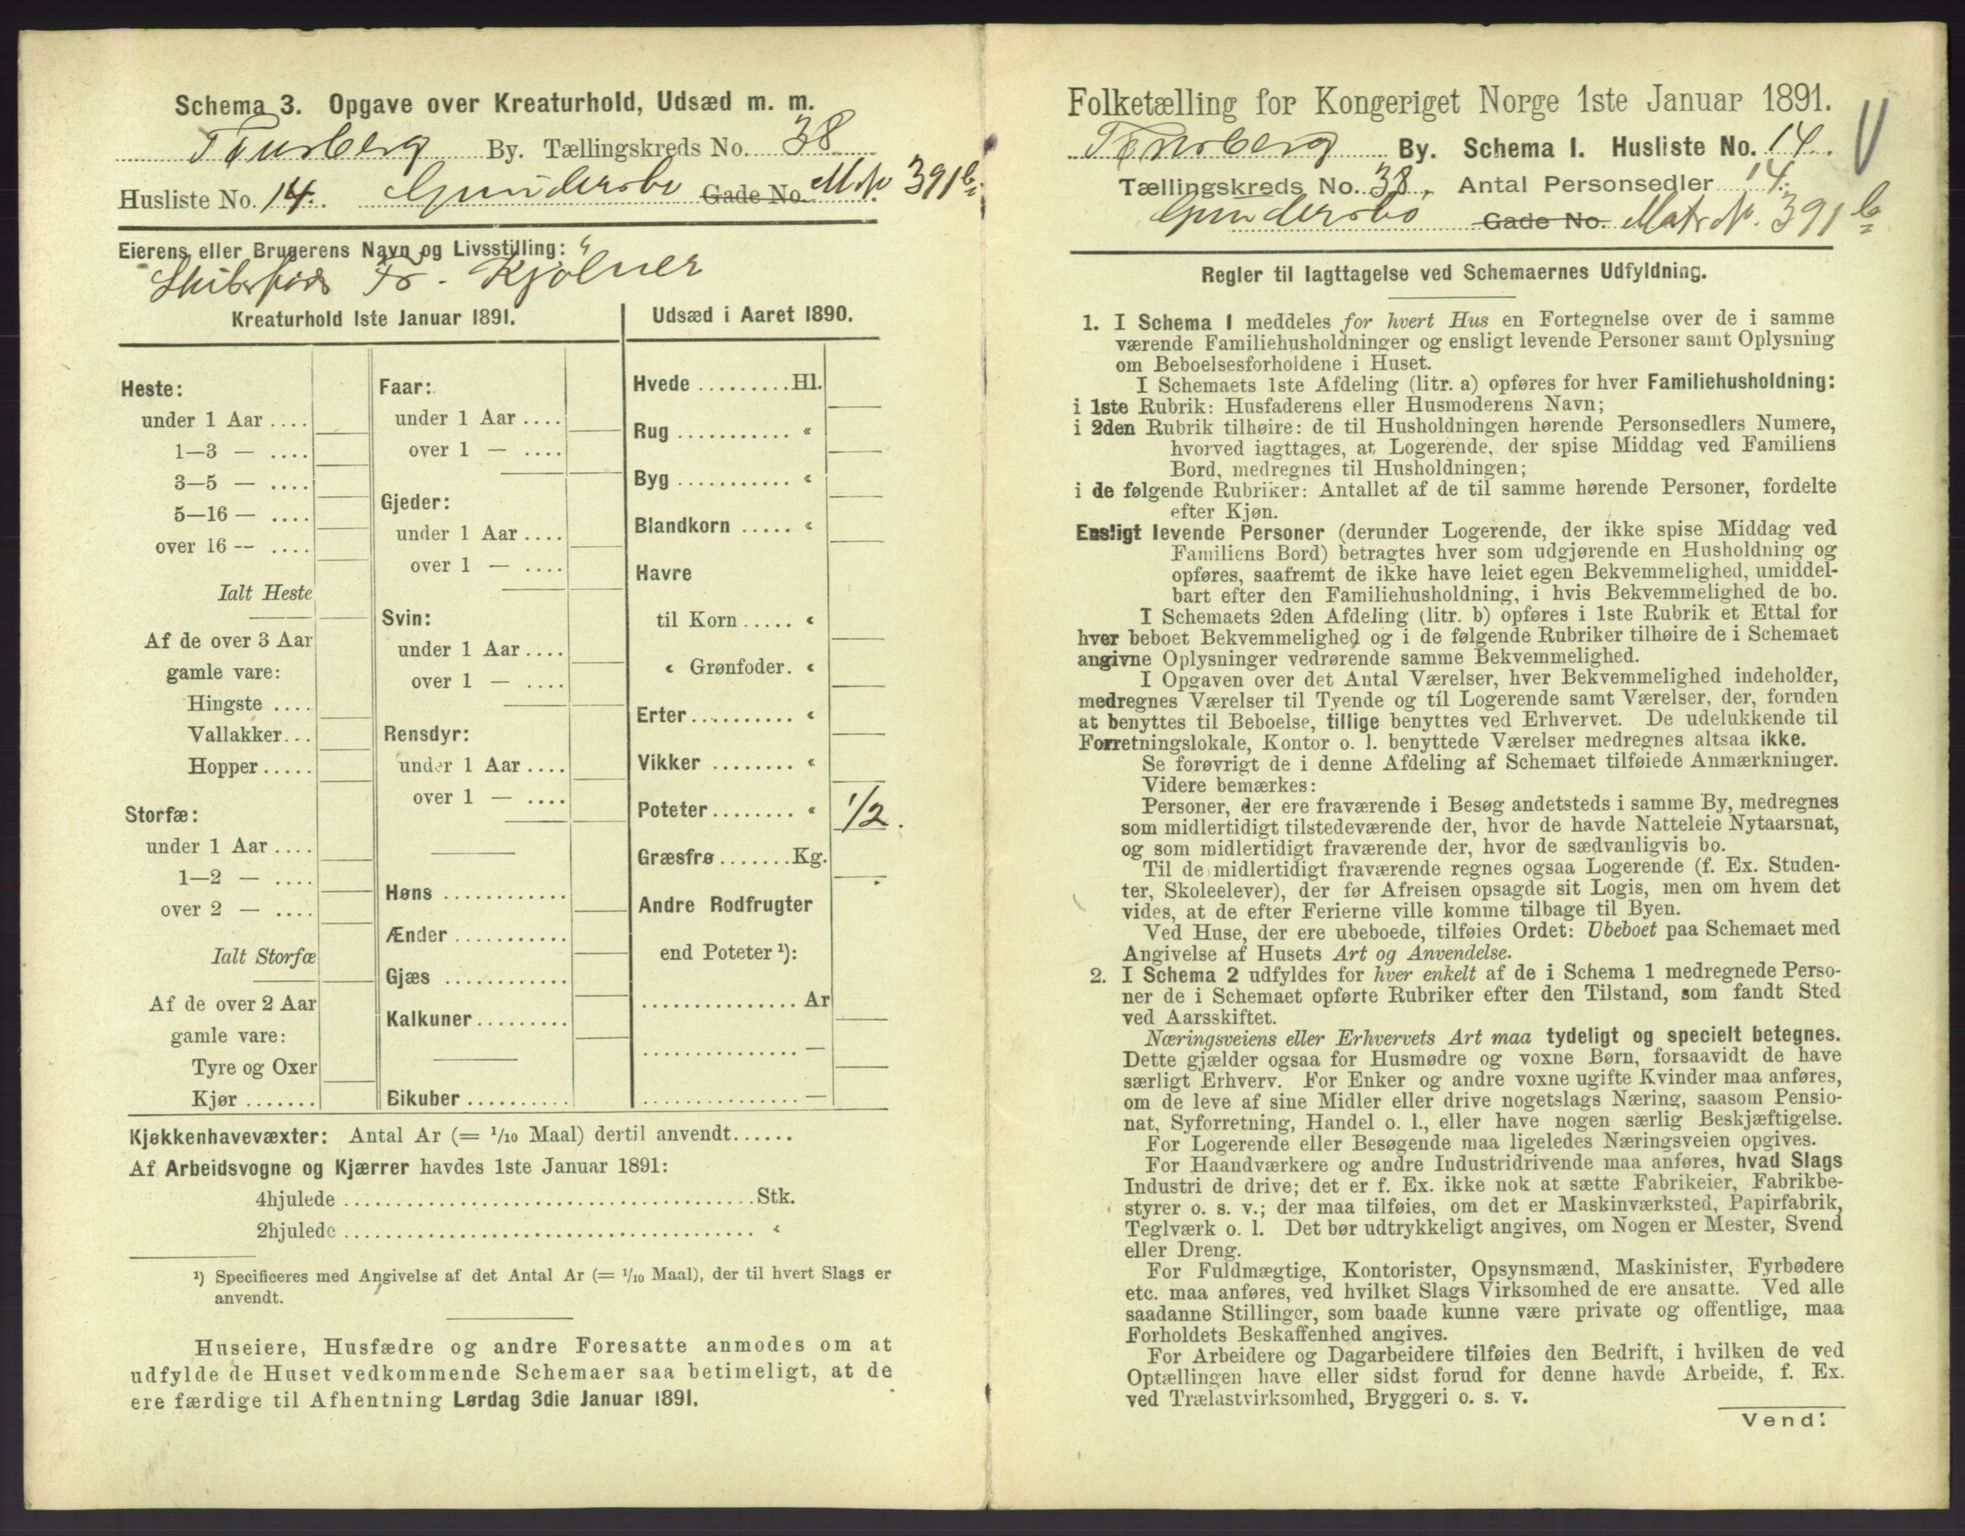 Schema 3. Opgave over Kreaturhold, Udsæd m. m.
Tønsberg By. Tællingskreds No. 38
Husliste No. 14. Gundersbø Gade No. M. № 391b
Eierens eller Brugerens Navn og Livsstilling:
Fr. Kjølner
Kreaturhold 1ste Januar 1891.
Udsæd i Aaret 1890.
Heste:
under 1 Aar ....
1—3 — ....
3—5 — ....
5—16 — ....
over 16 -- ....
Ialt Heste
Af de over 3 Aar
gamle vare:
Hingste ....
Vallakker...
Hopper.....
Storfæ:
under 1 Aar ....
1—2 — ....
over 2 — ....
Ialt Storfæ
Af de over 2 Aar
gamle vare:
Tyre og Oxer
Kjør.......
Faar:
under 1 Aar ....
over 1 — ....
Gjeder:
under 1 Aar ....
over 1 — ....
Svin:
under 1 Aar ....
over 1 — ....
Rensdyr:
under 1 Aar ....
over 1 — ....
Høns ...........
Ænder ...........
Gjæs ...........
Kalkuner.........
Bikuber ..........
Hvede .........Hl.
Rug ........... «
Byg ........... «
Blandkorn ..... «
Havre
til Korn ..... «
« Grønfoder. «
Erter.......... «
Vikker ........ «
Poteter........ « 1/2.
Græsfrø.......Kg.
Andre Rodfrugter
end Poteter ¹):
............... Ar
............... —
............... —
Kjøkkenhavevæxter: Antal Ar (= 1/10 Maal) dertil anvendt......
Af Arbeidsvogne og Kjærrer havdes 1ste Januar 1891:
4hjulede ........................................Stk.
2hjulede ........................................ «
¹) Specificeres med Angivelse af det Antal Ar (= 1/10 Maal), der til hvert Slags er
anvendt.
Huseiere, Husfædre og andre Foresatte anmodes om at
udfylde de Huset vedkommende Schemaer saa betimeligt, at de
ere færdige til Afhentning Lørdag 3die Januar 1891.
Folketælling for Kongeriget Norge 1ste Januar 1891.
Tønsberg By. Schema I. Husliste No. 14.
Tællingskreds No. 38. Antal Personsedler 14.
Gundersbø Gade No. Matr №. 391b
Regler til Iagttagelse ved Schemaernes Udfyldning.
1. I Schema I meddeles for hvert Hus en Fortegnelse over de i samme
værende Familiehusholdninger og ensligt levende Personer samt Oplysning
om Beboelsesforholdene i Huset.
I Schemaets 1ste Afdeling (litr. a) opføres for hver Familiehusholdning:
i 1ste Rubrik: Husfaderens eller Husmoderens Navn;
i 2den Rubrik tilhøire: de til Husholdningen hørende Personsedlers Numere,
hvorved iagttages, at Logerende, der spise Middag ved Familiens
Bord, medregnes til Husholdningen;
i de følgende Rubriker: Antallet af de til samme hørende Personer, fordelte
efter Kjøn.
Ensligt levende Personer (derunder Logerende, der ikke spise Middag ved
Familiens Bord) betragtes hver som udgjørende en Husholdning og
opføres, saafremt de ikke have leiet egen Bekvemmelighed, umiddel-
bart efter den Familiehusholdning, i hvis Bekvemmelighed de bo.
I Schemaets 2den Afdeling (litr. b) opføres i 1ste Rubrik et Ettal for
hver beboet Bekvemmelighed og i de følgende Rubriker tilhøire de i Schemaet
angivne Oplysninger vedrørende samme Bekvemmelighed.
I Opgaven over det Antal Værelser, hver Bekvemmelighed indeholder,
medregnes Værelser til Tyende og til Logerende samt Værelser, der, foruden
at benyttes til Beboelse, tillige benyttes ved Erhvervet. De udelukkende til
Forretningslokale, Kontor o. l. benyttede Værelser medregnes altsaa ikke.
Se forøvrigt de i denne Afdeling af Schemaet tilføiede Anmærkninger.
Videre bemærkes:
Personer, der ere fraværende i Besøg andetsteds i samme By, medregnes
som midlertidigt tilstedeværende der, hvor de havde Natteleie Nytaarsnat,
og som midlertidigt fraværende der, hvor de sædvanligvis bo.
Til de midlertidigt fraværende regnes ogsaa Logerende (f. Ex. Studen-
ter, Skoleelever), der før Afreisen opsagde sit Logis, men om hvem det
vides, at de efter Ferierne ville komme tilbage til Byen.
Ved Huse, der ere ubeboede, tilføies Ordet: Ubeboet paa Schemaet med
Angivelse af Husets Art og Anvendelse.
2. I Schema 2 udfyldes for hver enkelt af de i Schema 1 medregnede Perso-
ner de i Schemaet opførte Rubriker efter den Tilstand, som fandt Sted
ved Aarsskiftet.
Næringsveiens eller Erhvervets Art maa tydeligt og specielt betegnes.
Dette gjælder ogsaa for Husmødre og voxne Børn, forsaavidt de have
særligt Erhverv. For Enker og andre voxne ugifte Kvinder maa anføres,
om de leve af sine Midler eller drive nogetslags Næring, saasom Pensio-
nat, Syforretning, Handel o. l., eller have nogen særlig Beskjæftigelse.
For Logerende eller Besøgende maa ligeledes Næringsveien opgives.
For Haandværkere og andre Industridrivende maa anføres, hvad Slags
Industri de drive; det er f. Ex. ikke nok at sætte Fabrikeier, Fabrikbe-
styrer o. s. v.; der maa tilføies, om det er Maskinværksted, Papirfabrik,
Teglværk o. l. Det bør udtrykkeligt angives, om Nogen er Mester, Svend
eller Dreng.
For Fuldmægtige, Kontorister, Opsynsmænd, Maskinister, Fyrbødere
etc. maa anføres, ved hvilket Slags Virksomhed de ere ansatte. Ved alle
saadanne Stillinger, som baade kunne være private og offentlige, maa
Forholdets Beskaffenhed angives.
For Arbeidere og Dagarbeidere tilføies den Bedrift, i hvilken de ved
Optællingen have eller sidst forud for denne havde Arbeide, f. Ex.
ved Trælastvirksomhed, Bryggeri o. s. v.
Vend!